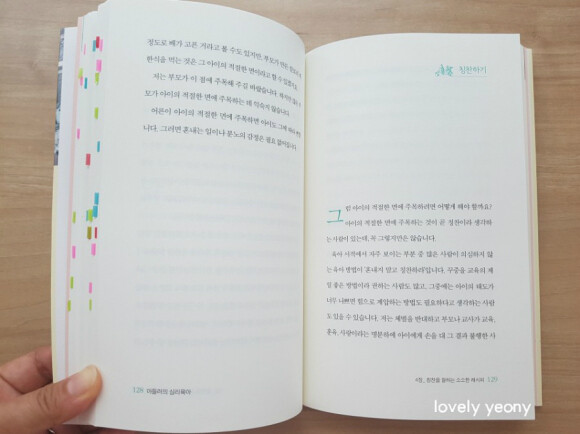 정도로 배가 고픈 거라고 볼 수도 있지만, 부모가 만든
한식을 먹는 것은 그 아이의 적절한 면이라고 할 수 있겠지요.
저는 부모가 이 점에 주목해 주길 바랍니다. 하지만
모가 아이의 적절한 면에 주목하는 데 익숙지 않습니다.
어른이 아이의 적절한 면에 주목하면 아이도 그에
니다. 그러면 혼내는 일이나 분노의 감정은 필요 없어집니다.
128 아들러의 심리육아
칭찬하기
그럼 아이의 적절한 면에 주목하려면 어떻게 해야 할까요?
아이의 적절한 면에 주목하는 것이 곧 칭찬이라 생각하
는 사람이 있는데, 꼭 그렇지만은 않습니다.
육아 서적에서 자주 보이는 부분 중 많은 사람이 의심하지 않
는 육아 방법이 '혼내지 말고 칭찬하라'입니다. 꾸중을 교육의 제
일 좋은 방법이라 권하는 사람도 많고, 그중에는 아이의 태도가
너무 나쁘면 힘으로 제압하는 방법도 필요하다고 생각하는 사람
도 있을 수 있습니다. 저는 체벌을 반대하고 부모나 교사가 교육,
훈육, 사랑이라는 명분하에 아이에게 손을 댈 때 그 결과 불행한 사
129
lovely yeony